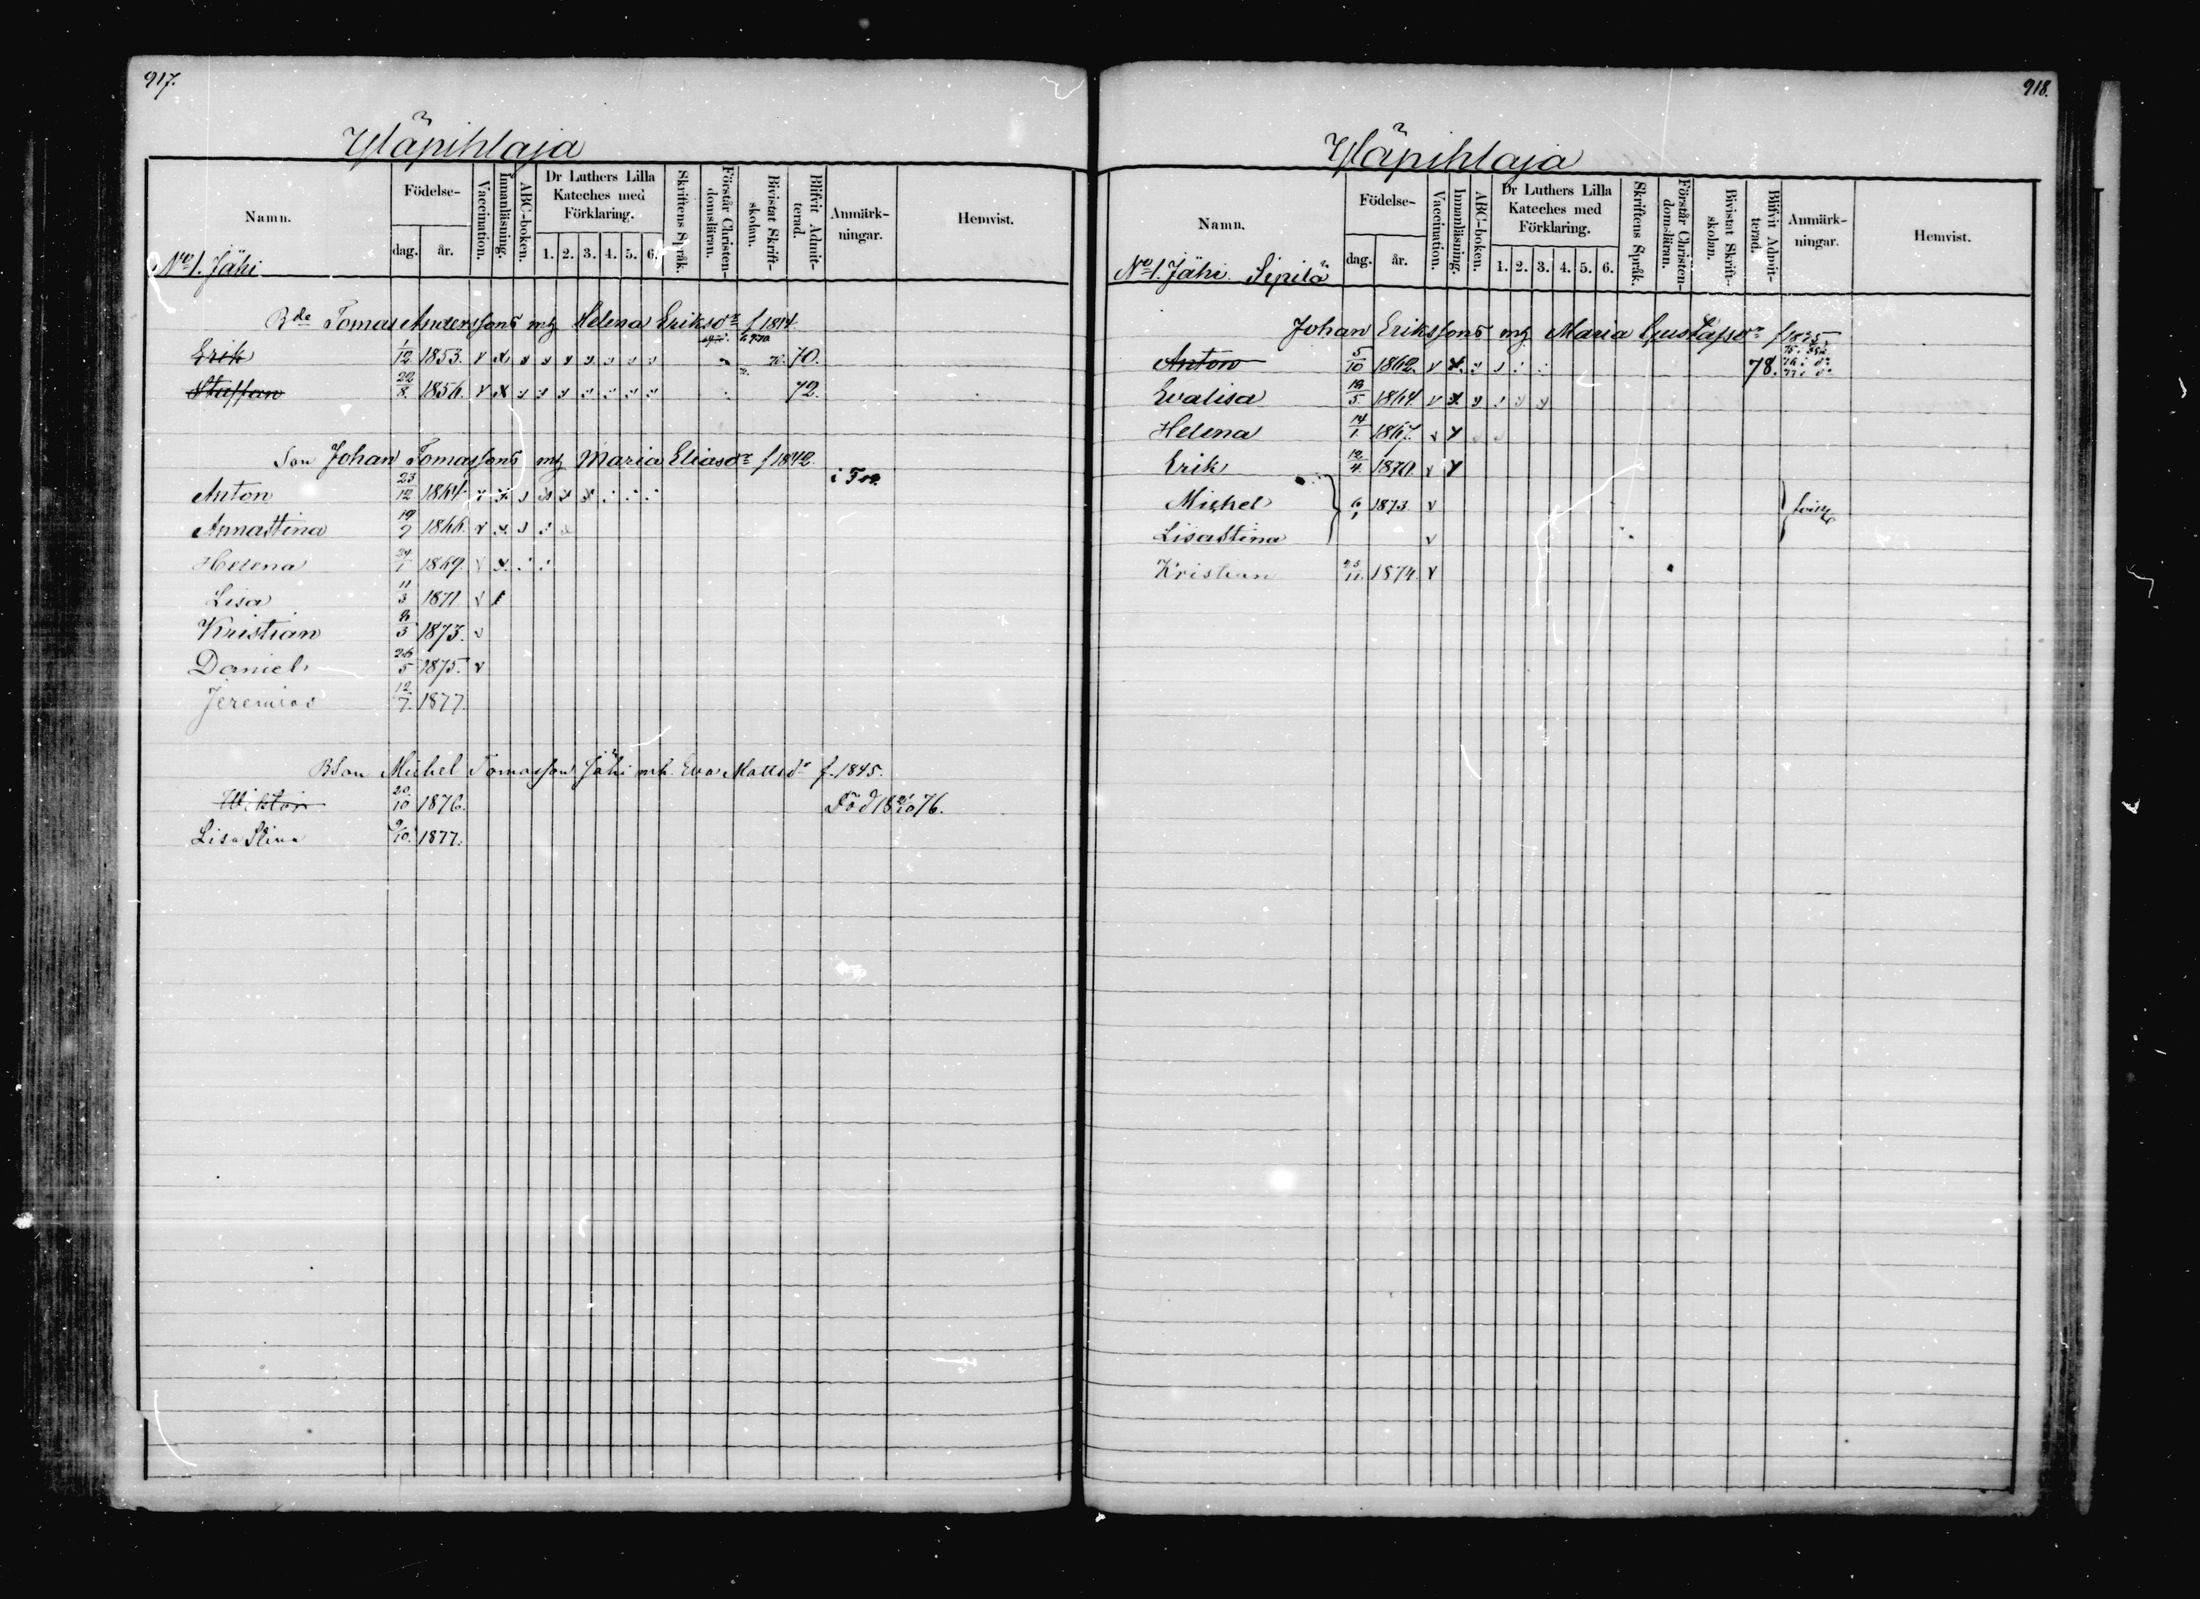 917.
Yläpihlaja
Namn.
Födelse-
dag.
år.
Vaccination.
Innanläsning.
ABC-boken.
Dr Luthers Lilla
Kateches med
Förklaring.
1. 2. 3. 4. 5. 6.
Skriftens Språk.
Förstår Christen-
domsläran.
Bivistat Skrift-
skolan.
Blifvit Admit-
terad.
Anmärk-
ningar.
Hemvist.
No 1. Jähi
Bde Tomas Anderssons mh Helena Eriksdr f 1814
Erik 1/12 1853. v x 70.
Staffan 22/8 1856. v x 72.
Son Johan Tomassons mh Maria Eliasdr f 1842.
Anton 23/12 1864
Annastina 19/7 1866. v x
Helena 24/1 1869. v x
Lisa 11/3 1871 v
Kristian 8/3 1873. v
Daniel 26/5 1875. v
Jeremias 12/7. 1877.
BSon Michel Tomasson Jähi mh. Eva Mattsdr f. 1845.
Wiktor 20/10 1876. Död 18 21/10 76.
Lisa Stina 9/10. 1877.
918.
Yläpihlaja
Namn.
Födelse-
dag.
år.
Vaccination.
Innanläsning.
ABC-boken.
Dr Luthers Lilla
Kateches med
Förklaring.
1. 2. 3. 4. 5. 6.
Skriftens Språk.
Förstår Christen-
domsläran.
Bivistat Skrift-
skolan.
Blifvit Admit-
terad.
Anmärk-
ningar.
Hemvist.
No 1. Jähi. Sipilä
Johan Erikssons mh Maria Gustafsdr f 1835.
Anton 5/10 1862. v x 78.
Evalisa 18/5 1864. v x
Helena 14/1 1867. v
Erik 12/4. 1870. v
Michel 6/1 1873. v
Lisastina v
Kristian 25/11. 1874. v